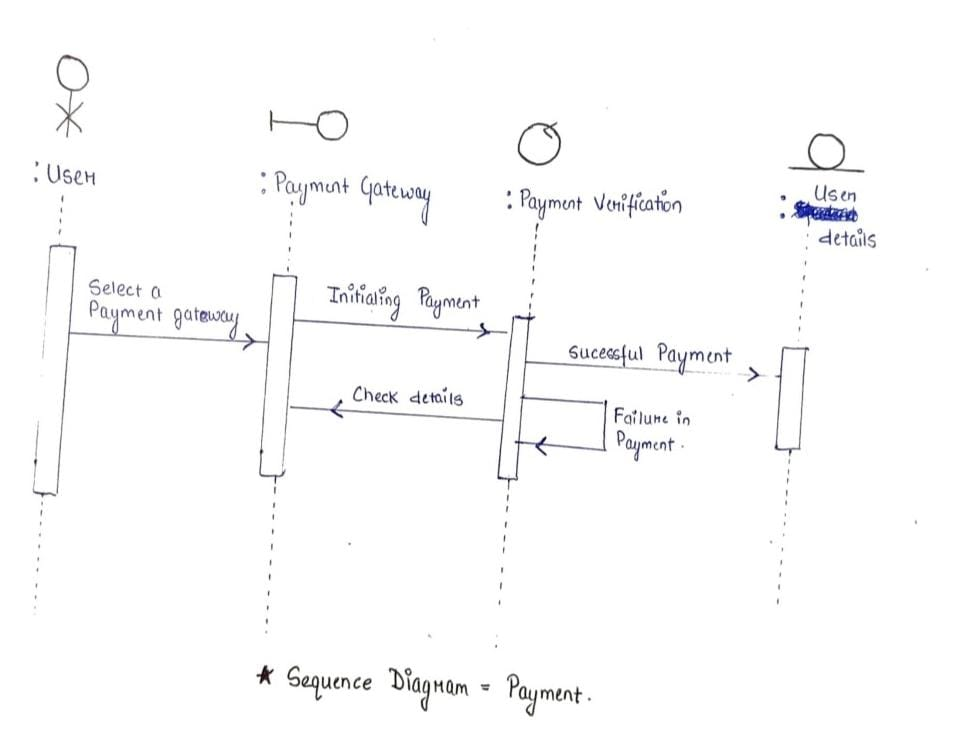 : User
: Payment Gateway
: Payment Verification
: User
details
Select a
Payment gateway
Initialing Payment
Sucessful Payment
Check details
Failure in
Payment.
* Sequence Diagram = Payment.